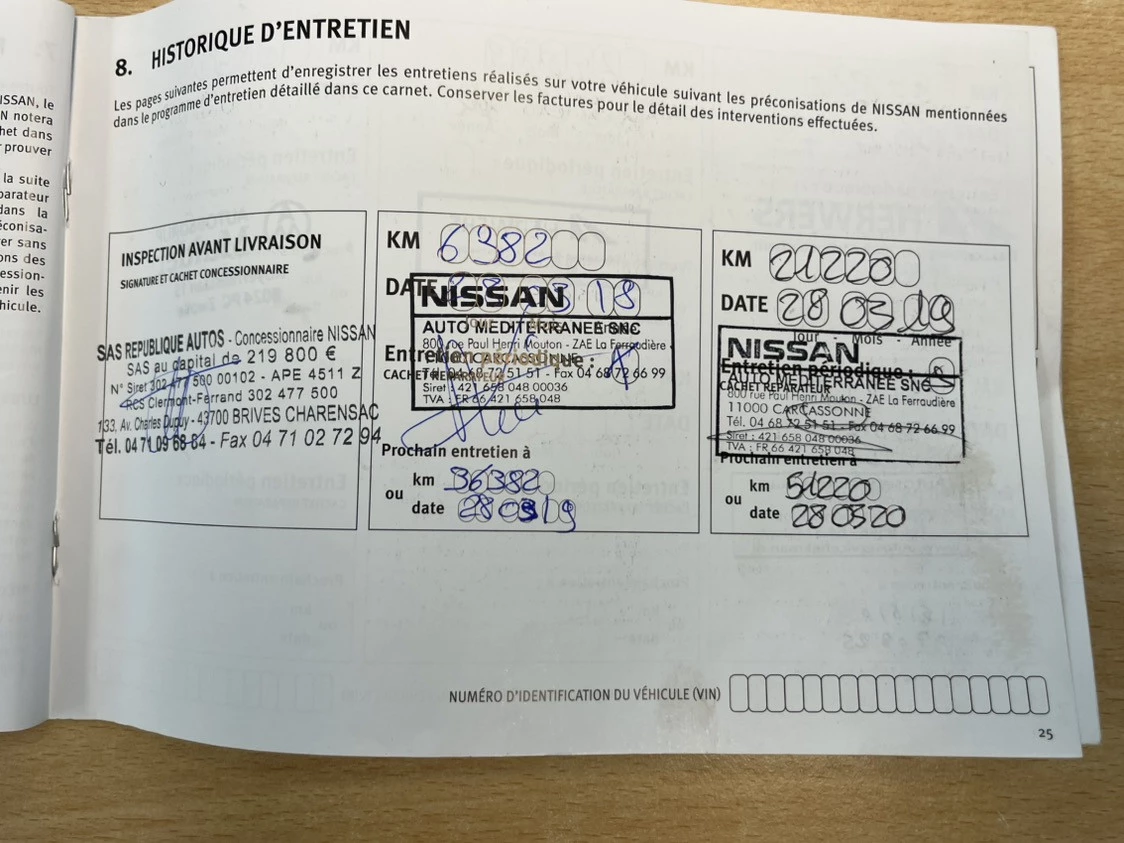 ISSAN, le
N notera
het dans
prouver
la suite
parateur
dans la
éconisa-
er sans
ons des
ession-
enir les
hicule.
8. HISTORIQUE D'ENTRETIEN
Les pages suivantes permettent d'enregistrer les entretiens réalisés sur votre véhicule suivant les préconisations de NISSAN mentionnées
dans le programme d'entretien détaillé dans ce carnet. Conserver les factures pour le détail des interventions effectuées.
INSPECTION AVANT LIVRAISON
SIGNATURE ET CACHET CONCESSIONNAIRE
SAS REPUBLIQUE AUTOS - Concessionnaire NISSAN
SAS au capital de 219 800 €
N° Siret 302 477 500 00102 - APE 4511 Z
RCS Clermont-Ferrand 302 477 500
133, Av. Charles Dupuy - 43700 BRIVES CHARENSAC
Tél. 04 71 09 68 84 - Fax 04 71 02 72 94
KM 6982
DATE 03 18
NISSAN
AUTO MEDITERRANEE SNC
800 rue Paul Henri Mouton - ZAE La Ferraudière
11000 CARCASSONNE
Entretien périodique :
Tél. 04 68 72 51 51 - Fax 04 68 72 66 99
CACHET REPARATEUR
Siret : 421 658 048 00036
TVA : FR 66 421 658 048
Prochain entretien à
km 36982
ou
date 28 03 19
KM 21220
DATE 28 03 19
Jour Mois Année
NISSAN
Entretien périodique :
AUTO MEDITERRANEE SNC
CACHET REPARATEUR
800 rue Paul Henri Mouton - ZAE La Ferraudière
11000 CARCASSONNE
Tél. 04 68 72 51 51 - Fax 04 68 72 66 99
Siret : 421 658 048 00036
TVA : FR 66 421 658 048
Prochain entretien à
km 51220
ou
date 28 03 20
NUMÉRO D'IDENTIFICATION DU VÉHICULE (VIN)
25